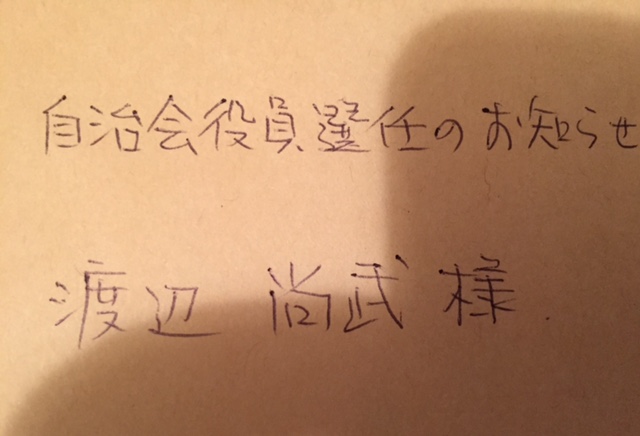 自治会役員選任のお知らせ
渡辺 尚武 様